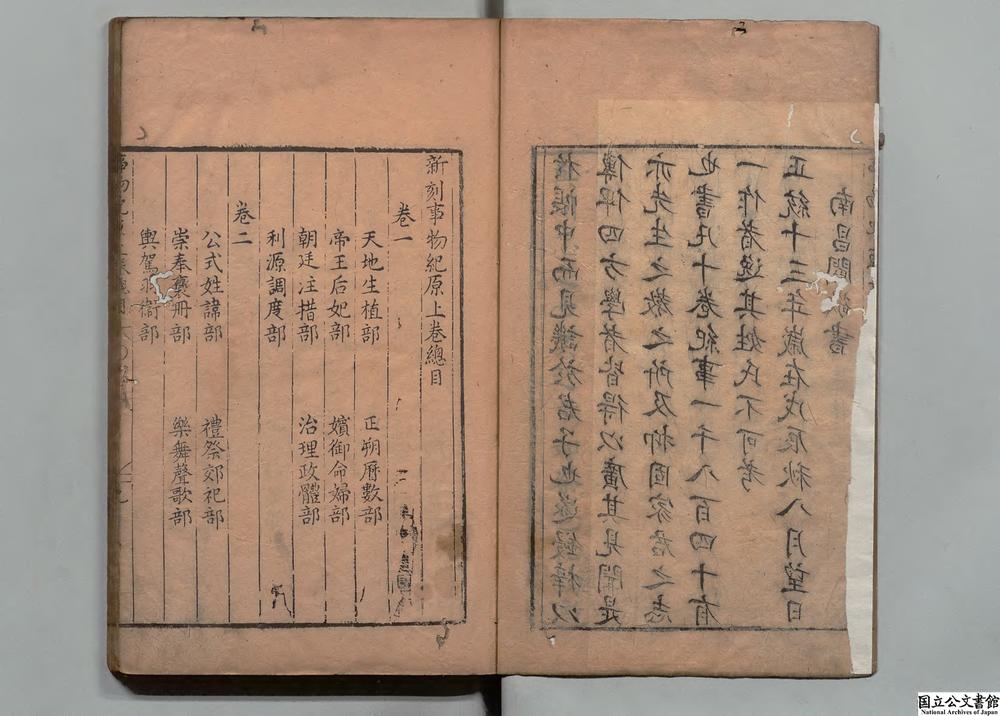 於帳中而見譏於君子也遂鋟梓以
傳俾四方學者皆得以廣其見聞是
亦先生之教之所及抑固家君之志
也書凡十卷紀事一千八百四十有
一作者逸其姓氏不可考
正統十三年歲在戊辰秋八月望日
南昌閻敬書
新刻事物紀原上卷總目
卷一
天地生植部 正朔曆數部
帝王后妃部 嬪御命婦部
朝廷注措部 治理政體部
利源調度部
卷二
公式姓諱部 禮祭郊祀部
崇奉褒冊部 樂舞聲歌部
輿駕羽衛部
国立公文書館
National Archives of Japan